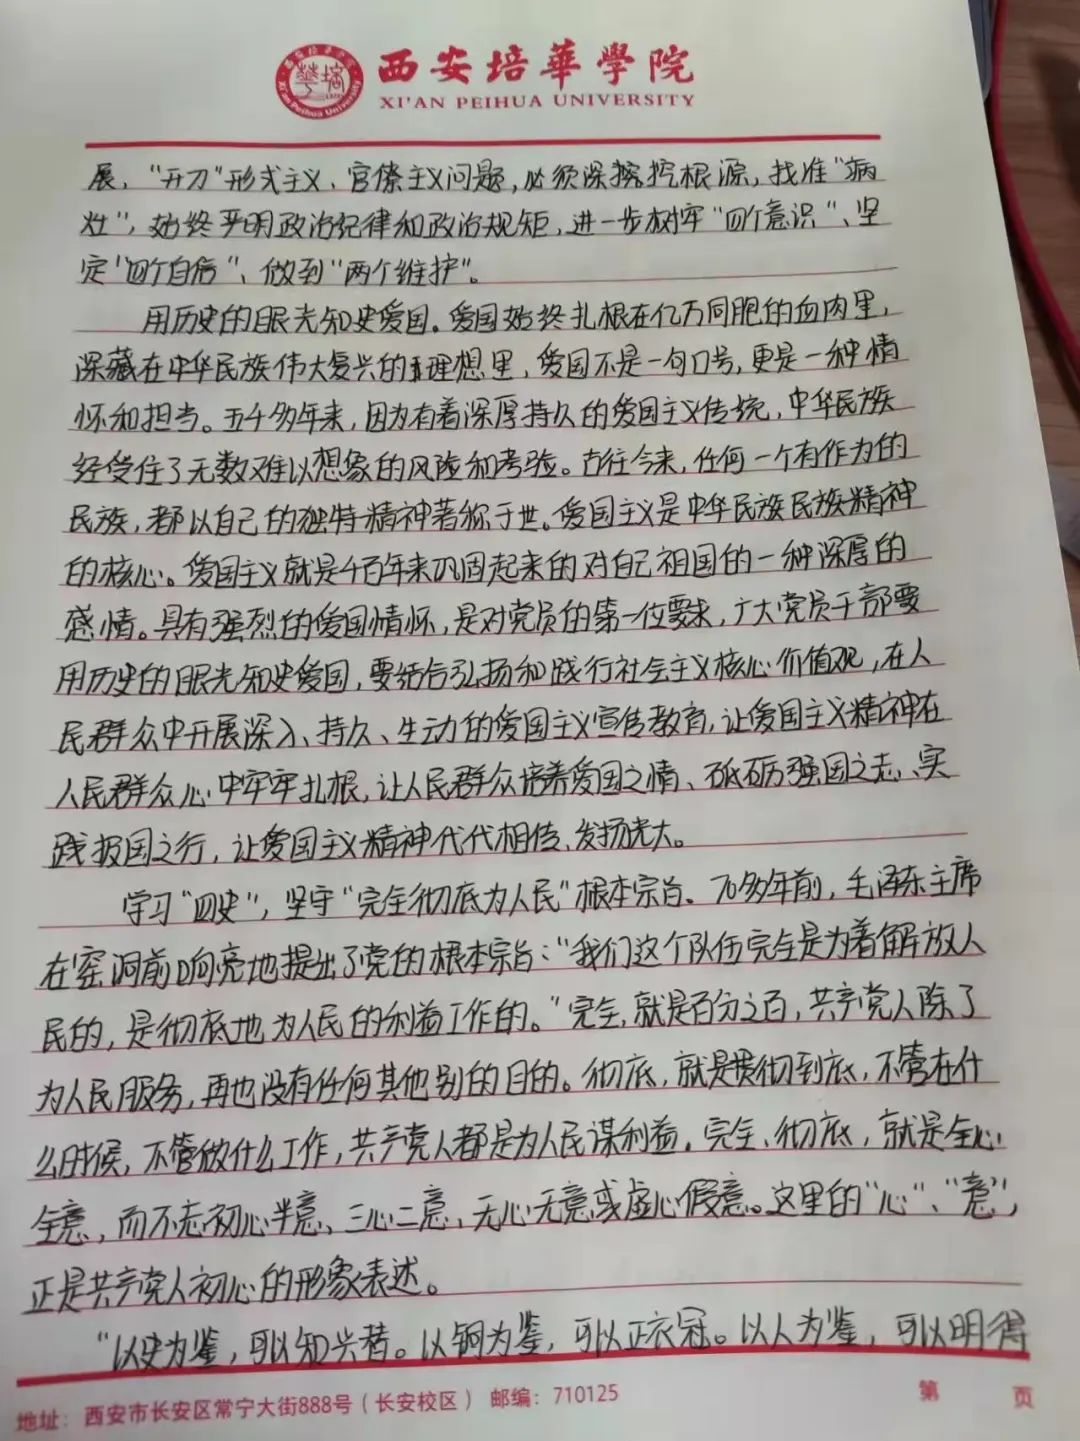 西安培華學院
XI'AN PEIHUA UNIVERSITY
展，“开刀”形式主义、官僚主义问题，必须深挖根源，找准“病
灶”，始终严明政治纪律和政治规矩，进一步树牢“四个意识”、坚
定“四个自信”、做到“两个维护”。
用历史的眼光知史爱国。爱国始终扎根在亿万同胞的血肉里，
深藏在中华民族伟大复兴的理想里，爱国不是一句口号，更是一种情
怀和担当。五千多年来，因为有着深厚持久的爱国主义传统，中华民族
经受住了无数难以想象的风险和考验。古往今来，任何一个有作为的
民族，都以自己的独特精神著称于世。爱国主义是中华民族民族精神
的核心。爱国主义就是千百年来巩固起来的对自己祖国的一种深厚的
感情。具有强烈的爱国情怀，是对党员的第一位要求，广大党员干部要
用历史的眼光知史爱国，要结合弘扬和践行社会主义核心价值观，在人
民群众中开展深入、持久、生动的爱国主义宣传教育，让爱国主义精神在
人民群众心中牢牢扎根，让人民群众培养爱国之情、砥砺强国之志、实
践报国之行，让爱国主义精神代代相传、发扬光大。
学习“四史”，坚守“完全彻底为人民”根本宗旨。70多年前，毛泽东主席
在窑洞前响亮地提出了党的根本宗旨：“我们这个队伍完全是为着解放人
民的，是彻底地为人民的利益工作的。”完全，就是百分之百，共产党人除了
为人民服务，再也没有任何其他别的目的。彻底，就是贯彻到底，不管在什
么时候，不管做什么工作，共产党人都是为人民谋利益。完全、彻底，就是全心
全意，而不忘初心半意、三心二意、无心无意或虚心假意。这里的“心”、“意”，
正是共产党人初心的形象表述。
“以史为鉴，可以知兴替。以铜为鉴，可以正衣冠。以人为鉴，可以明得
地址：西安市长安区常宁大街888号（长安校区） 邮编：710125
第 页